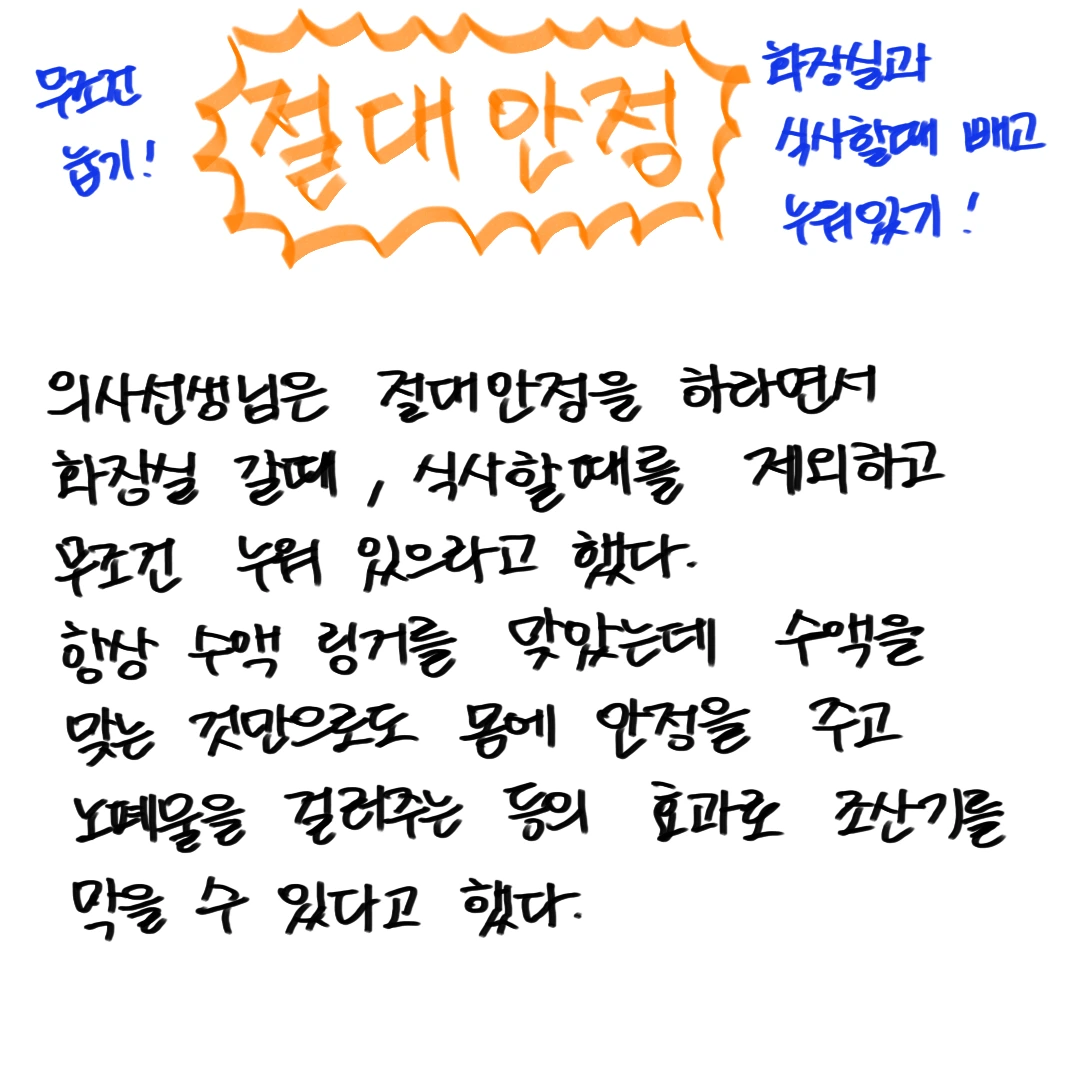 무조건
눕기!
절대안정
화장실과
식사할때 빼고
누워있기!
의사선생님은 절대안정을 하라면서
화장실 갈때, 식사할때를 제외하고
무조건 누워 있으라고 했다.
항상 수액 링거를 맞았는데 수액을
맞는 것만으로도 몸에 안정을 주고
노폐물을 걸러주는 등의 효과로 조산기를
막을 수 있다고 했다.